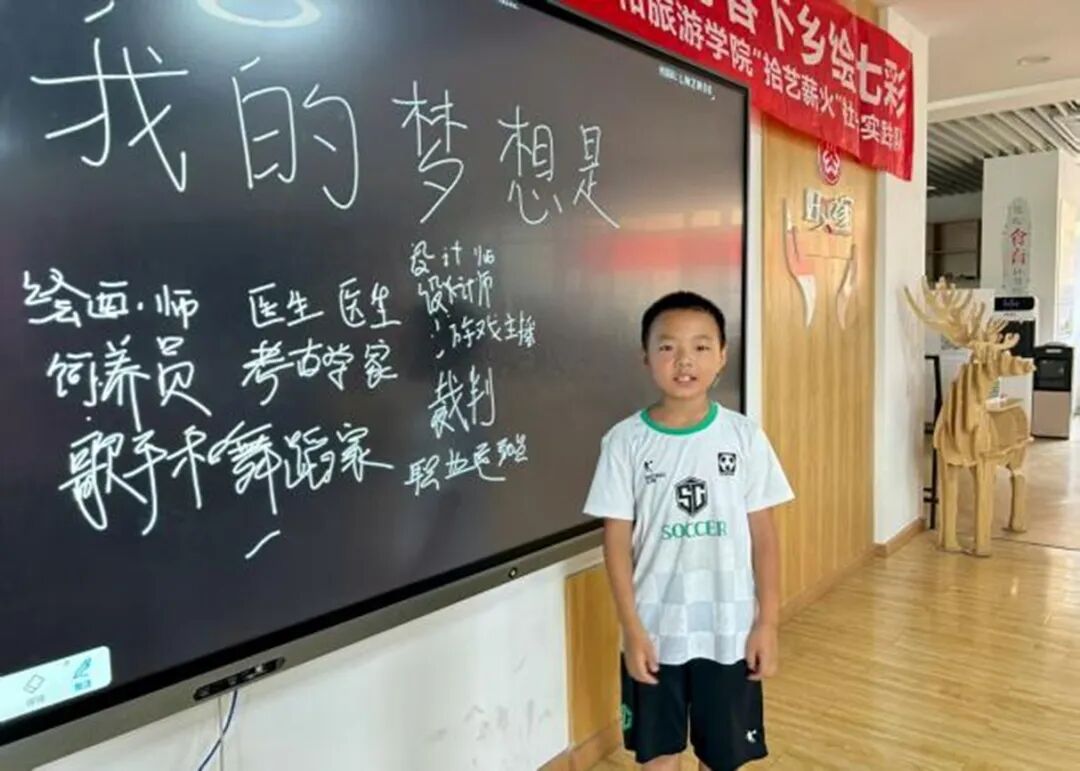 我的梦想是
绘画师
医生 医生
设计师
设计师
饲养员
考古学家
游戏主播
歌手和舞蹈家
裁判
职业运动员
下乡绘七彩
和旅游学院"拾艺薪火"社会实践队
SC
SOCCER